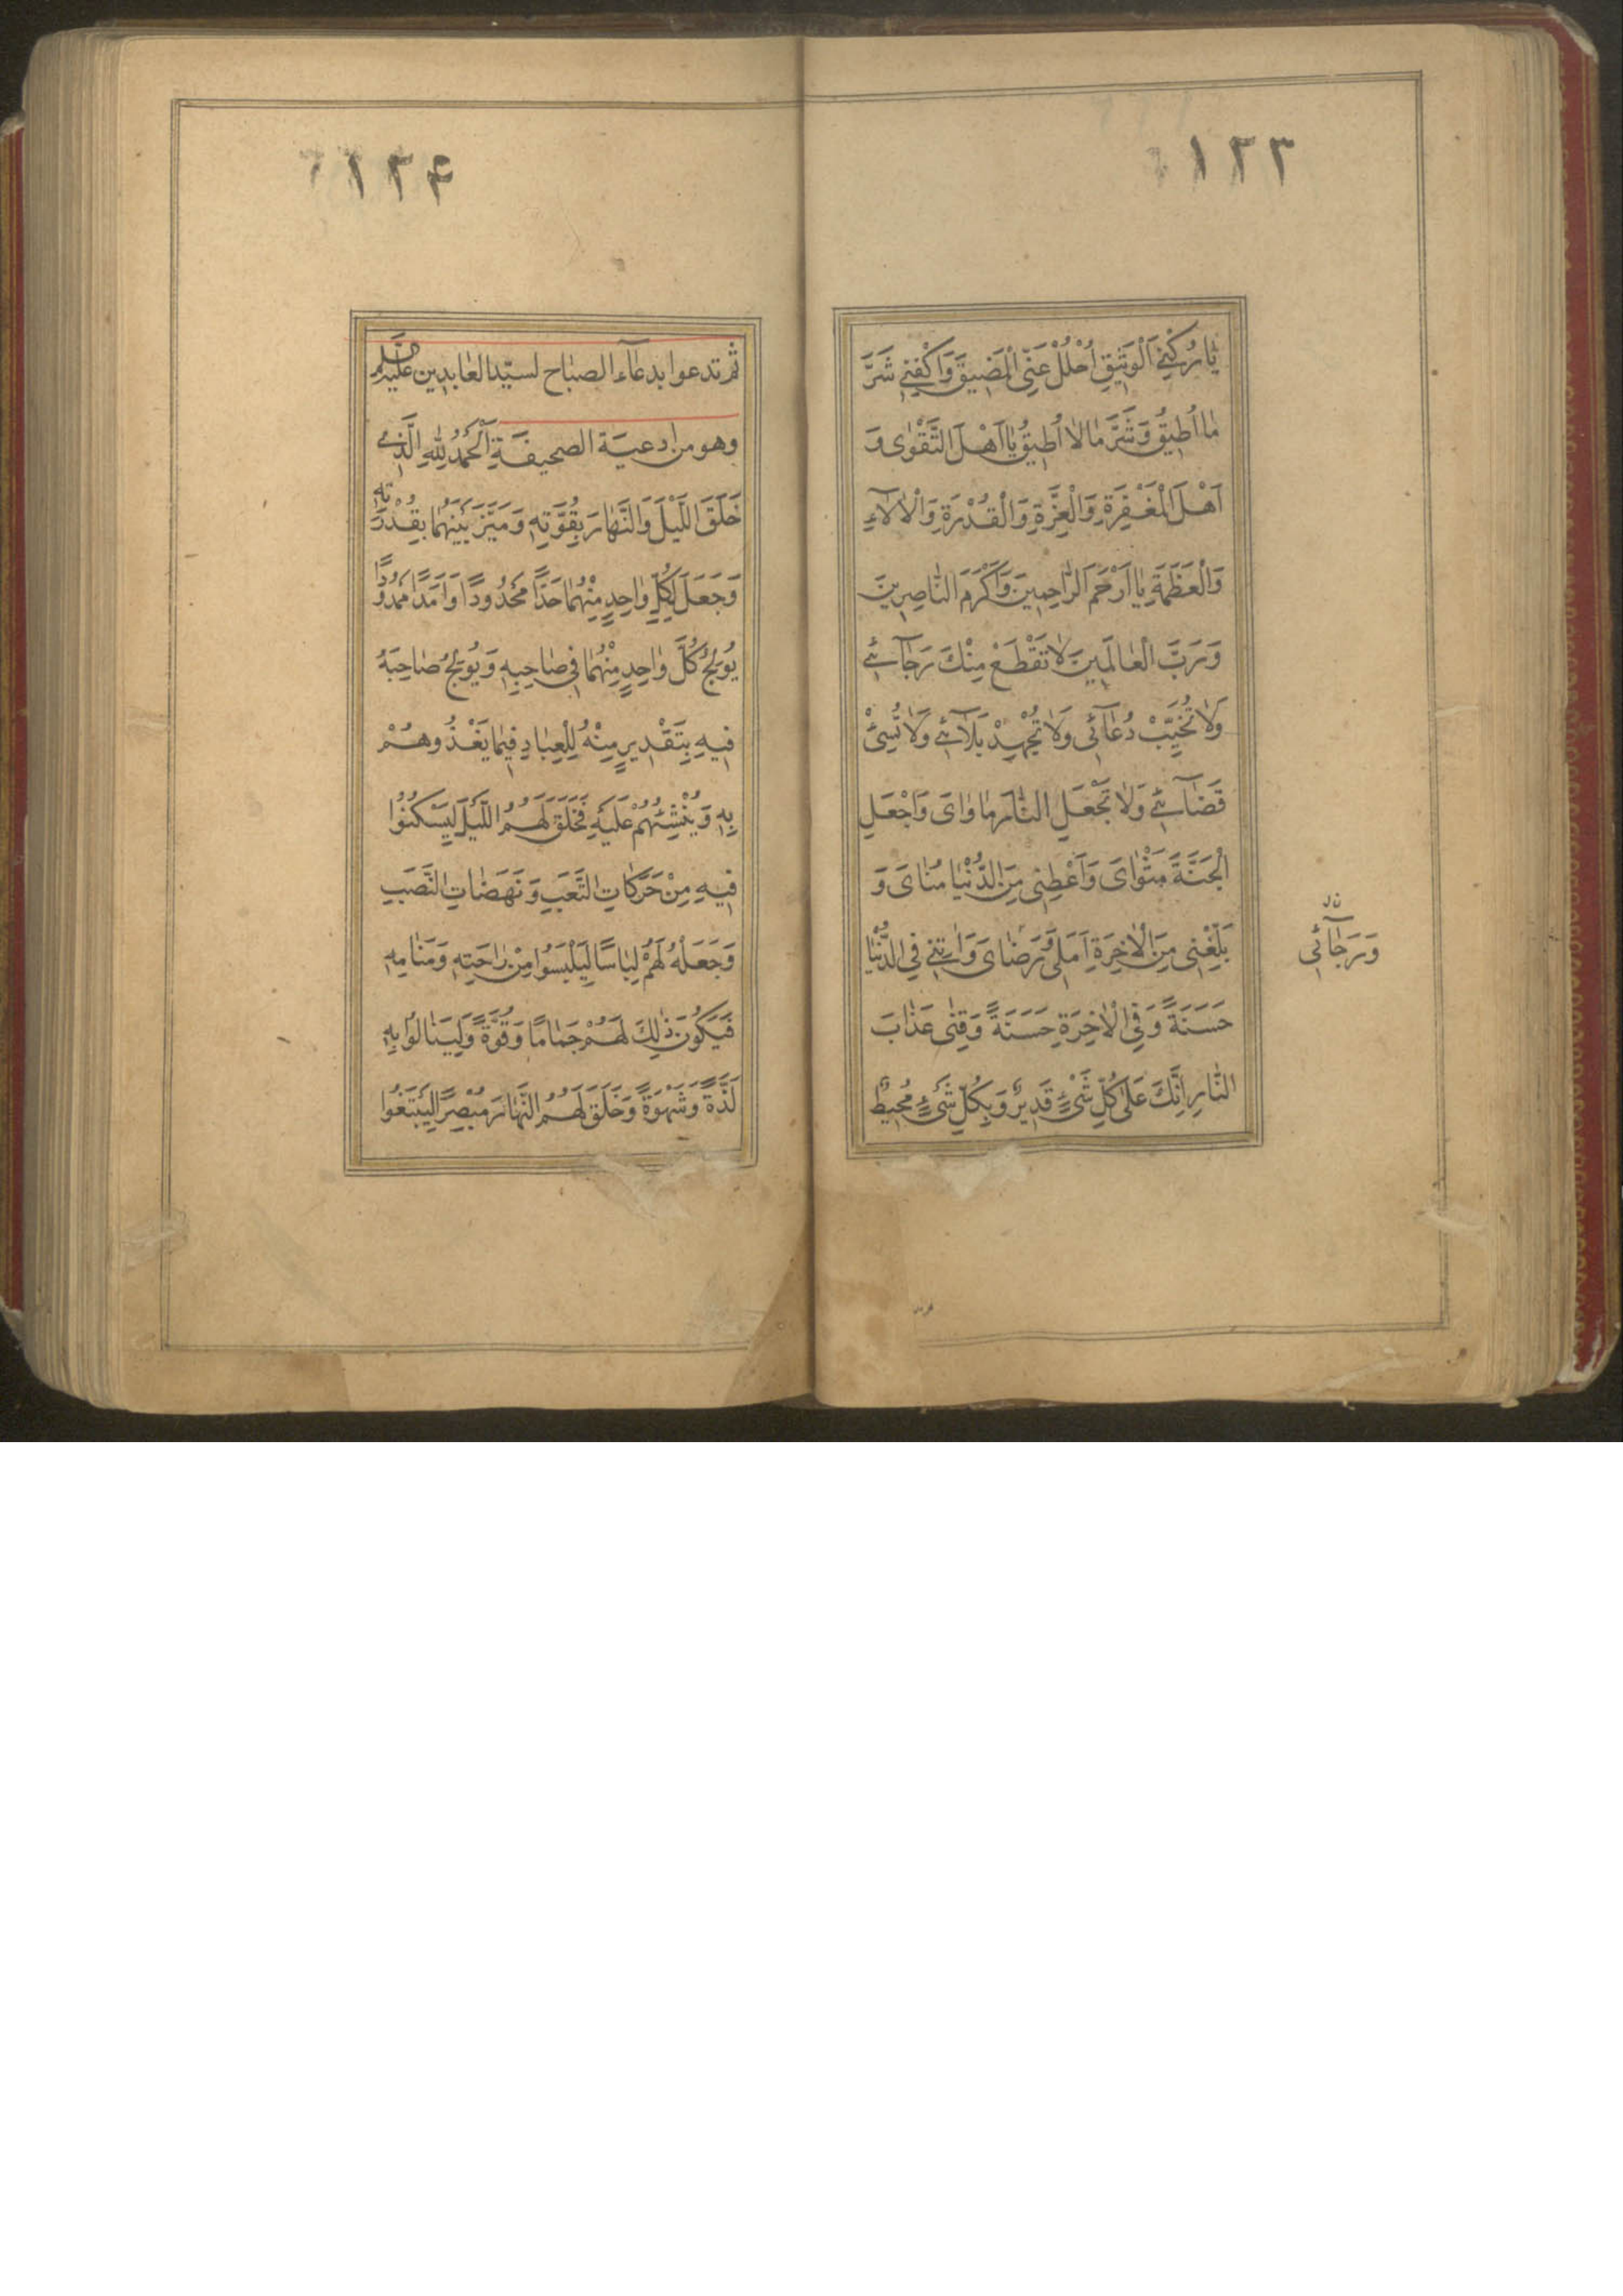 ١٢٣
يٰا رُكْنِىَ الْوَثِيْقِ اُحْلُلْ عَنِّى الْمَضِيقَ وَاكْفِنِى شَرَّ
مٰا اُطِيقُ وَشَرَّ مٰا لاٰ اُطِيقُ يٰا اَهْلَ التَّقْوٰى وَ
اَهْلَ الْمَغْفِرَةِ وَالْعِزَّةِ وَالْقُدْرَةِ وَالْاٰلاٰءِ
وَالْعَظَمَةِ يٰا اَرْحَمَ الرّٰاحِمِينَ وَاَكْرَمَ النّٰاصِرِينَ
وَرَبَّ الْعٰالَمِينَ لاٰ تَقْطَعْ مِنْكَ رَجٰآئِى
وَلاٰ تُخَيِّبْ دُعٰآئِى وَلاٰ تُجْهِدْ بَلاٰئِى وَلاٰ تُسِئْ
قَضٰآئِى وَلاٰ تَجْعَلِ النّٰارَ مٰاوٰاىَ وَاجْعَلِ
الْجَنَّةَ مَثْوٰاىَ وَاَعْطِنِى مِنَ الدُّنْيٰا مُنٰاىَ وَ
بَلِّغْنِى مِنَ الْاٰخِرَةِ اَمَلِى وَرِضٰاىَ وَاٰتِنِى فِى الدُّنْيٰا
وَرَجٰائِى
حَسَنَةً وَفِى الْاٰخِرَةِ حَسَنَةً وَقِنِى عَذٰابَ
النّٰارِ اِنَّكَ عَلٰى كُلِّ شَىْءٍ قَدِيرٌ وَبِكُلِّ شَىْءٍ مُحِيطٌ
١٢۴
ثم تدعوا بدعآء الصباح لسيّد العابدين عليه السلم
وهو من ادعية الصحيفة اَلْحَمْدُ لِلّٰهِ الَّذِى
خَلَقَ اللَّيْلَ وَالنَّهٰارَ بِقُوَّتِهِ وَمَيَّزَ بَيْنَهُمٰا بِقُدْرَتِهِ
وَجَعَلَ لِكُلِّ وٰاحِدٍ مِنْهُمٰا حَدًّا مَحْدُودًا وَاَمَدًا مَمْدُودًا
يُولِجُ كُلَّ وٰاحِدٍ مِنْهُمٰا فِى صٰاحِبِهِ وَيُولِجُ صٰاحِبَهُ
فِيهِ بِتَقْدِيرٍ مِنْهُ لِلْعِبٰادِ فِيمٰا يَغْذُوهُمْ
بِهِ وَيُنْشِئُهُمْ عَلَيْهِ فَخَلَقَ لَهُمُ اللَّيْلَ لِيَسْكُنُوا
فِيهِ مِنْ حَرَكٰاتِ التَّعَبِ وَنَهَضٰاتِ النَّصَبِ
وَجَعَلَهُ لَهُمْ لِبٰاسًا لِيَلْبَسُوا مِنْ رٰاحَتِهِ وَمَنٰامِهِ
فَيَكُونَ ذٰلِكَ لَهُمْ جَمٰامًا وَقُوَّةً وَلِيَنٰالُوا بِهِ
لَذَّةً وَشَهْوَةً وَخَلَقَ لَهُمُ النَّهٰارَ مُبْصِرًا لِيَبْتَغُوا